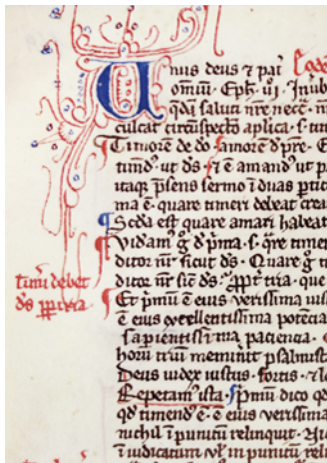 Unus deus ⁊ pat̄
omiū. Eph̄. iiij. In ub
q̄dā saluti nr̄e necē. n
culcat circūspectō aplica. s. tim
Timorē de dō. ⁊ amorē d̓ pre. E
timd̓. ut d̄s. ⁊ ē amand̓ ut pa
itaq̨ p̄sens sermo ī duas ptie
ma ē. quare timeri debeat crea
Scd̄a est quare amari habeat
Vidam̓ g̊ d̓ pma. s. qr̄e timer
dicit̄ nr̄ sicut d̄s. Quare g̊ t
dicit̄ nr̄ sic̄ d̄s. ꝓpt̄ tria. que
Et pmū ē eius verissima iud
ē eius excellentissima potēcia
sapientissima paciencia.
hoꝝ triū meminit psalmist
Deus iudex iustus. fortis. ⁊
Repetam̓ ista. pmū dico qd̓
qd̓ timend̓ ē. ē eius verissima
nichil īpunitū relinquit. Ni
ī iudicatum vl̓ in punitū reli
timeri debet
d̄s ꝓpt̄ tria.